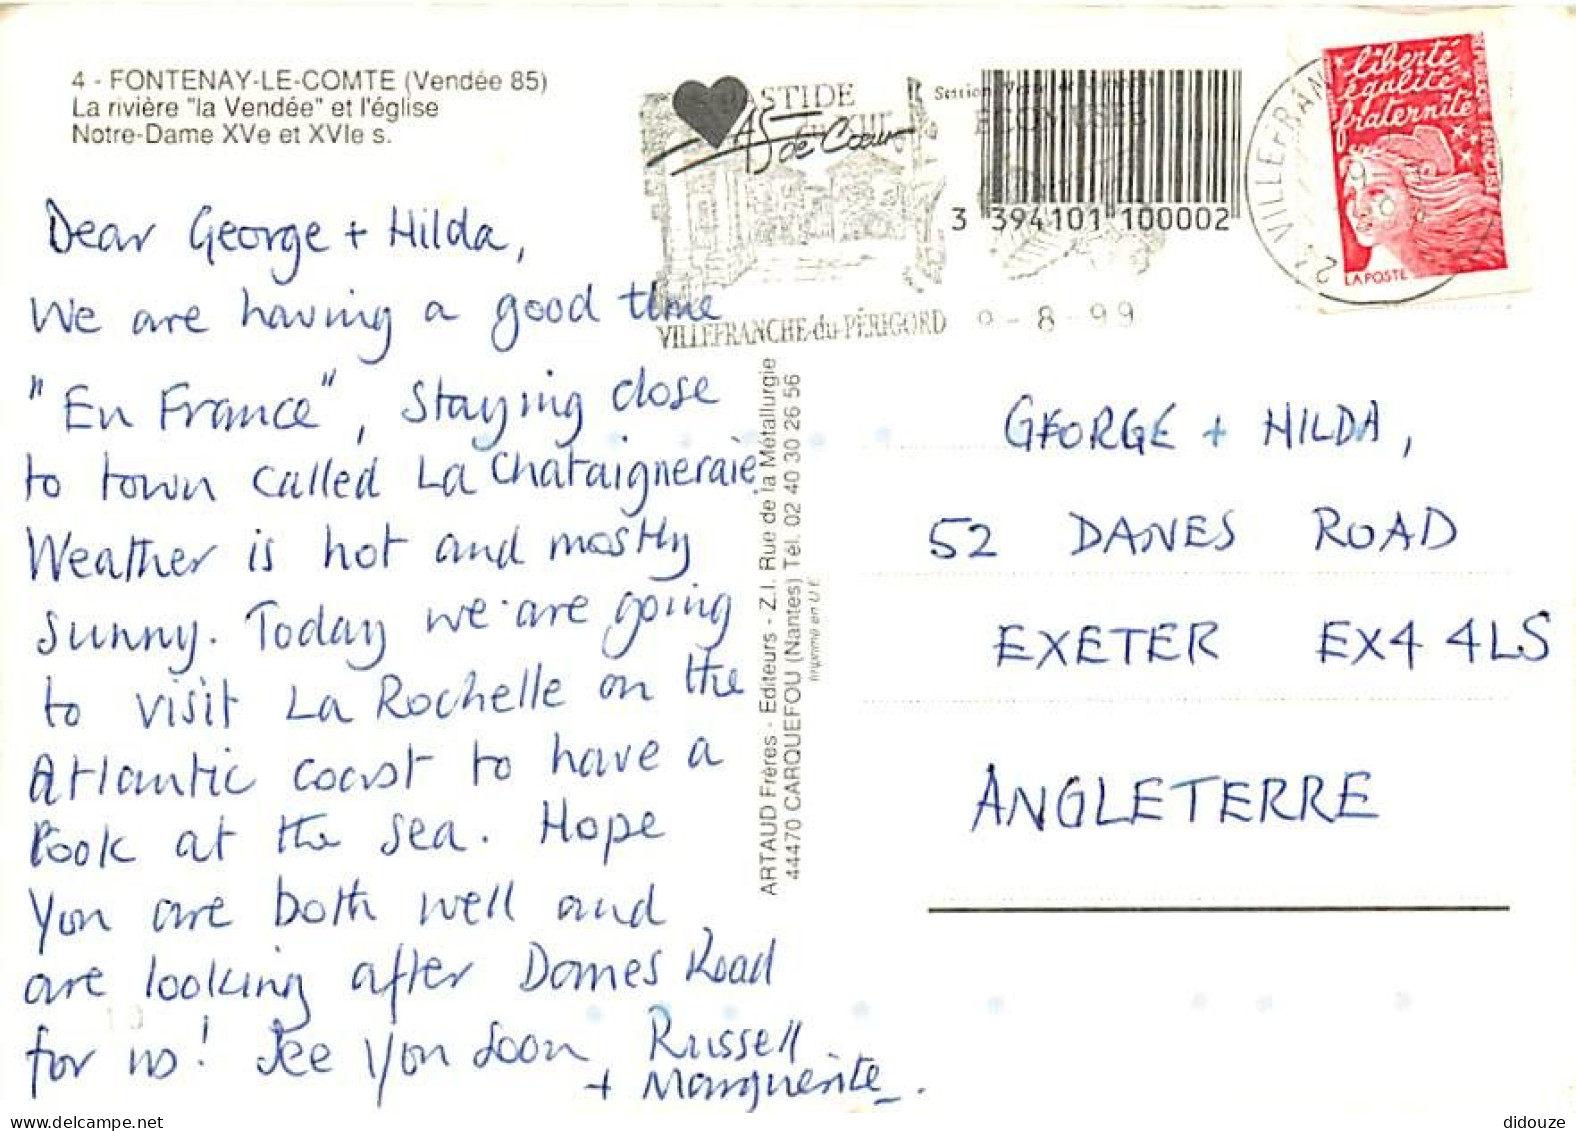 4 - FONTENAY-LE-COMTE (Vendée 85)
La rivière "la Vendée" et l'église
Notre-Dame XVe et XVIe s.
Dear George + Hilda,
We are having a good time
"En France", staying close
to town called La Chataigneraie.
Weather is hot and mostly
sunny. Today we are going
to visit La Rochelle on the
Atlantic coast to have a
look at the sea. Hope
you are both well and
are looking after Danes Road
for us! See you soon Russell
+ Marguerite.
BASTIDE
AS de Cœur
VILLEFRANCHE-du-PÉRIGORD 9-8-99
3 394101 100002
VILLEFRAN
liberté
égalité
fraternité
LA POSTE
ARTAUD Frères - Editeurs - Z.I. Rue de la Métallurgie
44470 CARQUEFOU (Nantes) Tél. 02 40 30 26 56
Imprimé en U.E.
GEORGE + HILDA,
52 DANES ROAD
EXETER EX4 4LS
ANGLETERRE
didouze